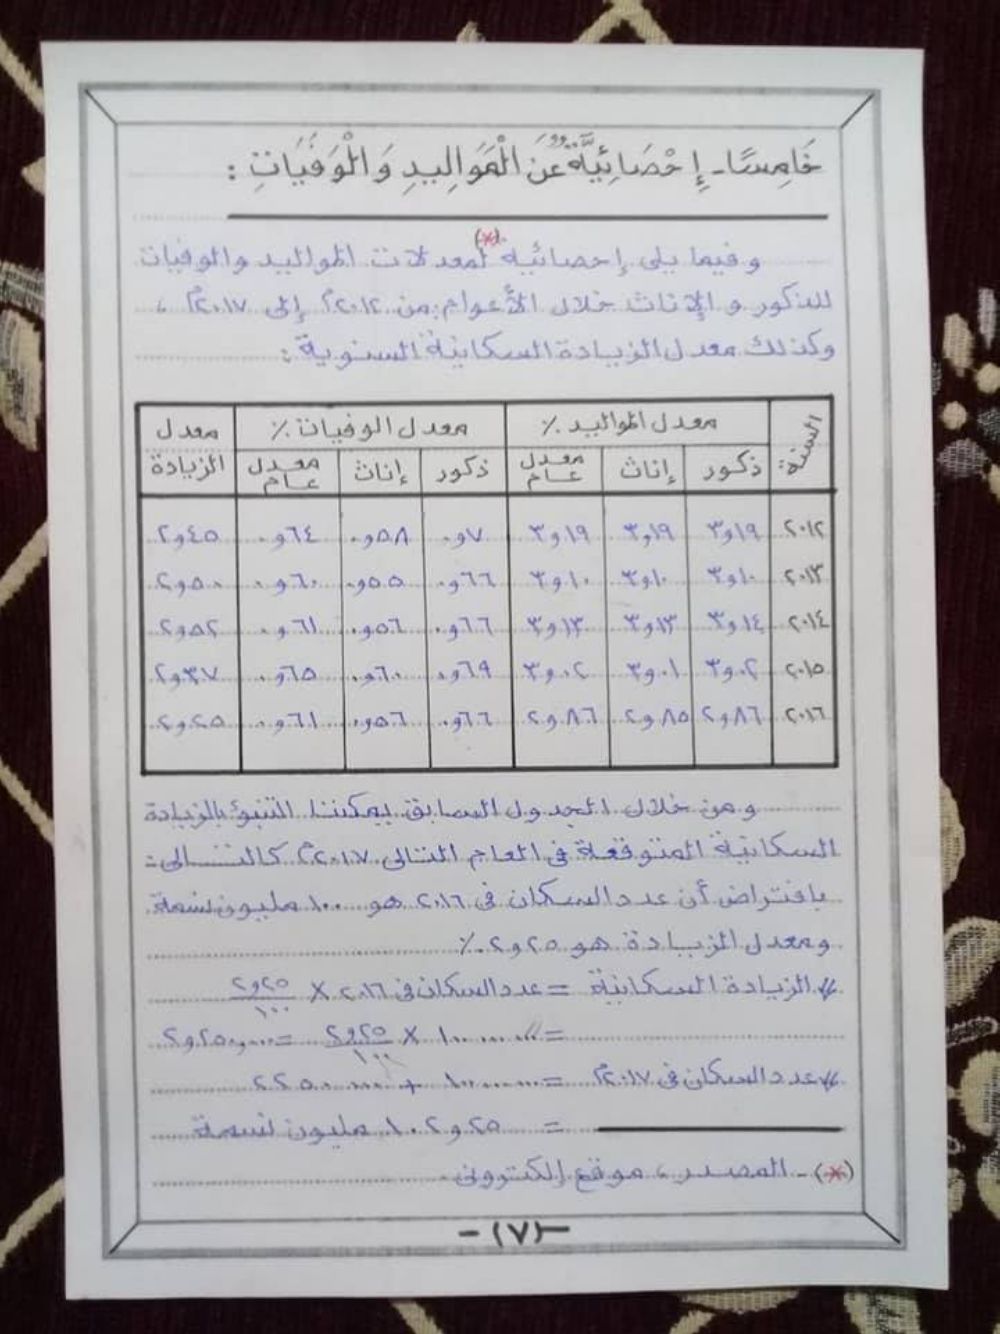 خَامِسًا- إِحْصَائِيَّةٌ عَنِ الْمَوَالِيدِ وَالْوَفَيَاتِ :
وفيما يلى إحصائية (*) لمعدلات المواليد والوفيات
للذكور والإناث خلال الأعوام من ٢٠١٢م إلى ٢٠١٧م ،
وكذلك معدل الزيادة السكانية السنوية :
السنة معدل المواليد % معدل الوفيات % معدل الزيادة
ذكور إناث معدل عام ذكور إناث معدل عام
٢٠١٢ ٣و١٩ ٣و١٩ ٣و١٩ ٠و٧ ٠و٥٨ ٠و٦٤ ٢و٤٥
٢٠١٣ ٣و١٠ ٣و١٠ ٣و١٠ ٠و٦٦ ٠و٥٥ ٠و٦٠ ٢و٥٠
٢٠١٤ ٣و١٤ ٣و١٣ ٣و١٣ ٠و٦٦ ٠و٥٦ ٠و٦١ ٢و٥٢
٢٠١٥ ٣و٠٢ ٣و٠١ ٣و٠٢ ٠و٦٩ ٠و٦٠ ٠و٦٥ ٢و٣٧
٢٠١٦ ٢و٨٦ ٢و٨٥ ٢و٨٦ ٠و٦٦ ٠و٥٦ ٠و٦١ ٢و٢٥
ومن خلال الجدول السابق يمكننا التنبؤ بالزيادة
السكانية المتوقعة فى العام التالى ٢٠١٧م كالتالى :
بافتراض أن عدد السكان فى ٢٠١٦ هو ١٠٠ مليون نسمة
ومعدل الزيادة هو ٢و٢٥ %
// الزيادة السكانية = عدد السكان فى ٢٠١٦ × ٢و٢٥/١٠٠
= ١٠٠٠٠٠٠٠٠ × ٢و٢٥/١٠٠ =
// عدد السكان فى ٢٠١٧م = ١٠٠٠٠٠٠٠٠ +
= ١٠٢و٢٥ مليون نسمة
(*)- المصدر ، موقع إلكترونى
-(٧)-